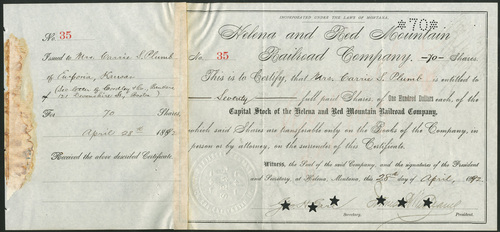 No. 35
Issued to Mrs. Carrie S. Plumb
of Emporia, Kansas
For 70 Shares,
April 28th 1892
Received the above described Certificate.
INCORPORATED UNDER THE LAWS OF MONTANA.
*70*
Helena and Red Mountain
No. 35 Railroad Company. -70- Shares
This is to Certify, that Mrs. Carrie S. Plumb is entitled to
Seventy full paid Shares of One Hundred Dollars each, of the
Capital Stock of the Helena and Red Mountain Railroad Company,
which said Shares are transferable only on the Books of the Company, in
person or by attorney, on the surrender of this Certificate.
Witness, the Seal of the said Company, and the signatures of the President
and Secretary, at Helena, Montana, this 28th day of April, 1892
Secretary. President.